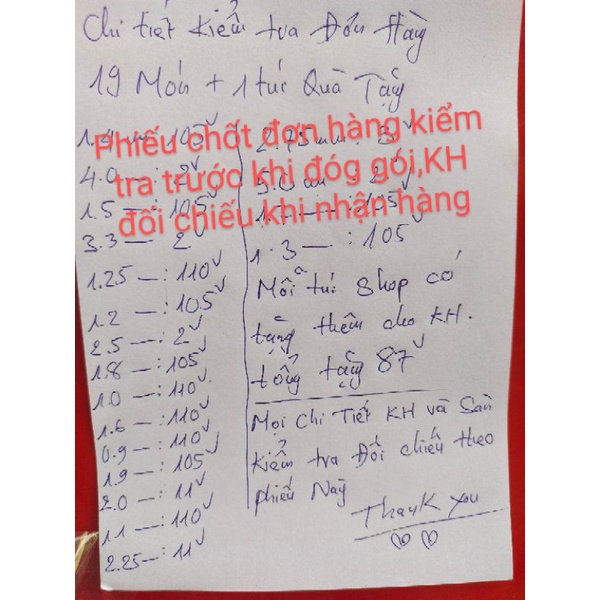 Chi tiết Kiểm tra Đơn Hàng
19 Món + 1 túi Quà Tặng
Phiếu chốt đơn hàng kiểm
tra trước khi đóng gói,KH
đối chiếu khi nhận hàng
4.0 —: 2
1.5 —: 105
3.3 — 2
1.25 —: 110
1.2 —: 105
2.5 —: 2
1.8 —: 105
1.0 —: 110
1.6 —: 110
0.9 —: 110
1.9 —: 105
2.0 —: 11
1.1 —: 110
2.25 —: 11
1.3 —: 105
Mỗi túi Shop có
tặng thêm cho KH.
tổng tặng 87
Mọi Chi Tiết KH và Sàn
Kiểm tra Đối chiếu theo
phiếu Này
Thank you